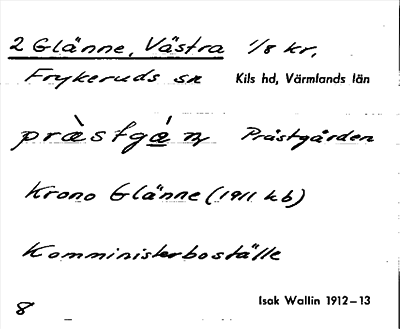 2 Glänne, Västra 1/8 kr,
Frykeruds sn Kils hd, Värmlands län
pràstgán Prästgården
Krono Glänne (1911 kb)
Komministerboställe
8 Isak Wallin 1912–13